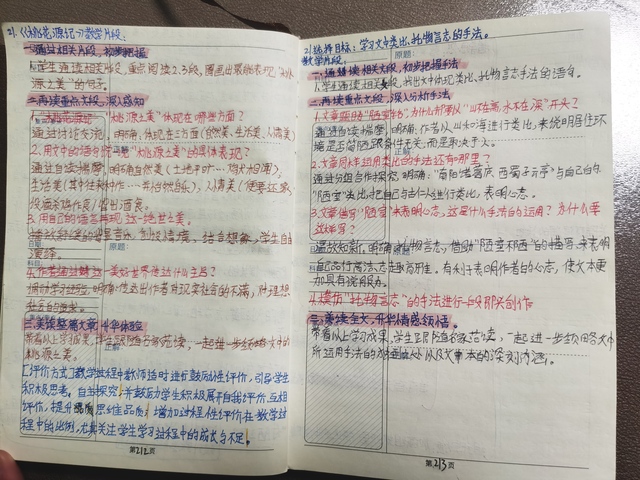 21.《桃花源记》教学片段:
一.通过相关片段,初步把握
1.学生诵读相关片段,重点阅读2.3段,圈画出最能表现"桃
源之美"的句子。
二.再读重点文段,深入感知
"桃源之美"体现在哪些方面?
通过讨论交流,明确,体现在三方面(自然美、生活美、人情美)
2.用文中的语句说一说"桃源之美"的具体表现?
通过自读揣摩,明确自然美(土地平旷…桑竹之属);
生活美(其中往来种作…并怡然自乐),人情美(便要还家,
设酒杀鸡作食)皆出酒食。
3.用自己的语言再现这一绝世之美。
结合想象,学生自由
4.作者通过
一美好世界传达什么主旨?
明确:传达出作者对现实社会的不满,对理想
社会的追求。
三.美读整篇文章,升华体验
带着以上学习成果,学生跟随名家范读,一起进一步领略文中的
桃源之美。
[评价方式]教学过程中教师适时进行鼓励性评价,引导学生
积极思考,自主探究,并鼓励学生积极展开自我评价,互相
评价,提升思维品质,增加过程性评价在教学过
程中的比例,尤其关注学生学习过程中的成长与不足。
第212页
2.选择目标:学习文中类比、托物言志的手法。
教学片段:
一.通读相关文段,初步把握手法
1.学生诵读相关片段,找出文中体现类比、托物言志手法的语句。
二.再读重点文段,深入分析手法
1.文章题为"陋室铭",为什么却要以"山不在高,水不在深"开头?
通过自读揣摩,明确:作者以山和海进行类比,来说明居住环
境是否简陋跟条件无关,而是取决于人。
2.文章同样运用类比的手法还有哪里?
通过分组合作探究,明确:"南阳诸葛庐,西蜀子云亭"与自己的
"陋室"类比,把自己与古仁人进行类比,表明心态。
3.文章借写"陋室"来表明心态,这是什么手法的运用?为什么要
这样写?
温故知新,明确托物言志,借助"陋室不陋"的描写来表明
自己品行高洁、志趣高雅,有利于表明作者的心态,使文本更
加具有说服力。
4.模仿"托物言志"的手法进行一段即兴创作
三.美读全文,升华情感领悟。
带着以上学习成果,学生跟随名家范读,一起进一步领略文中
所运用手法的妙处以及文章本的深刻内涵。
第213页